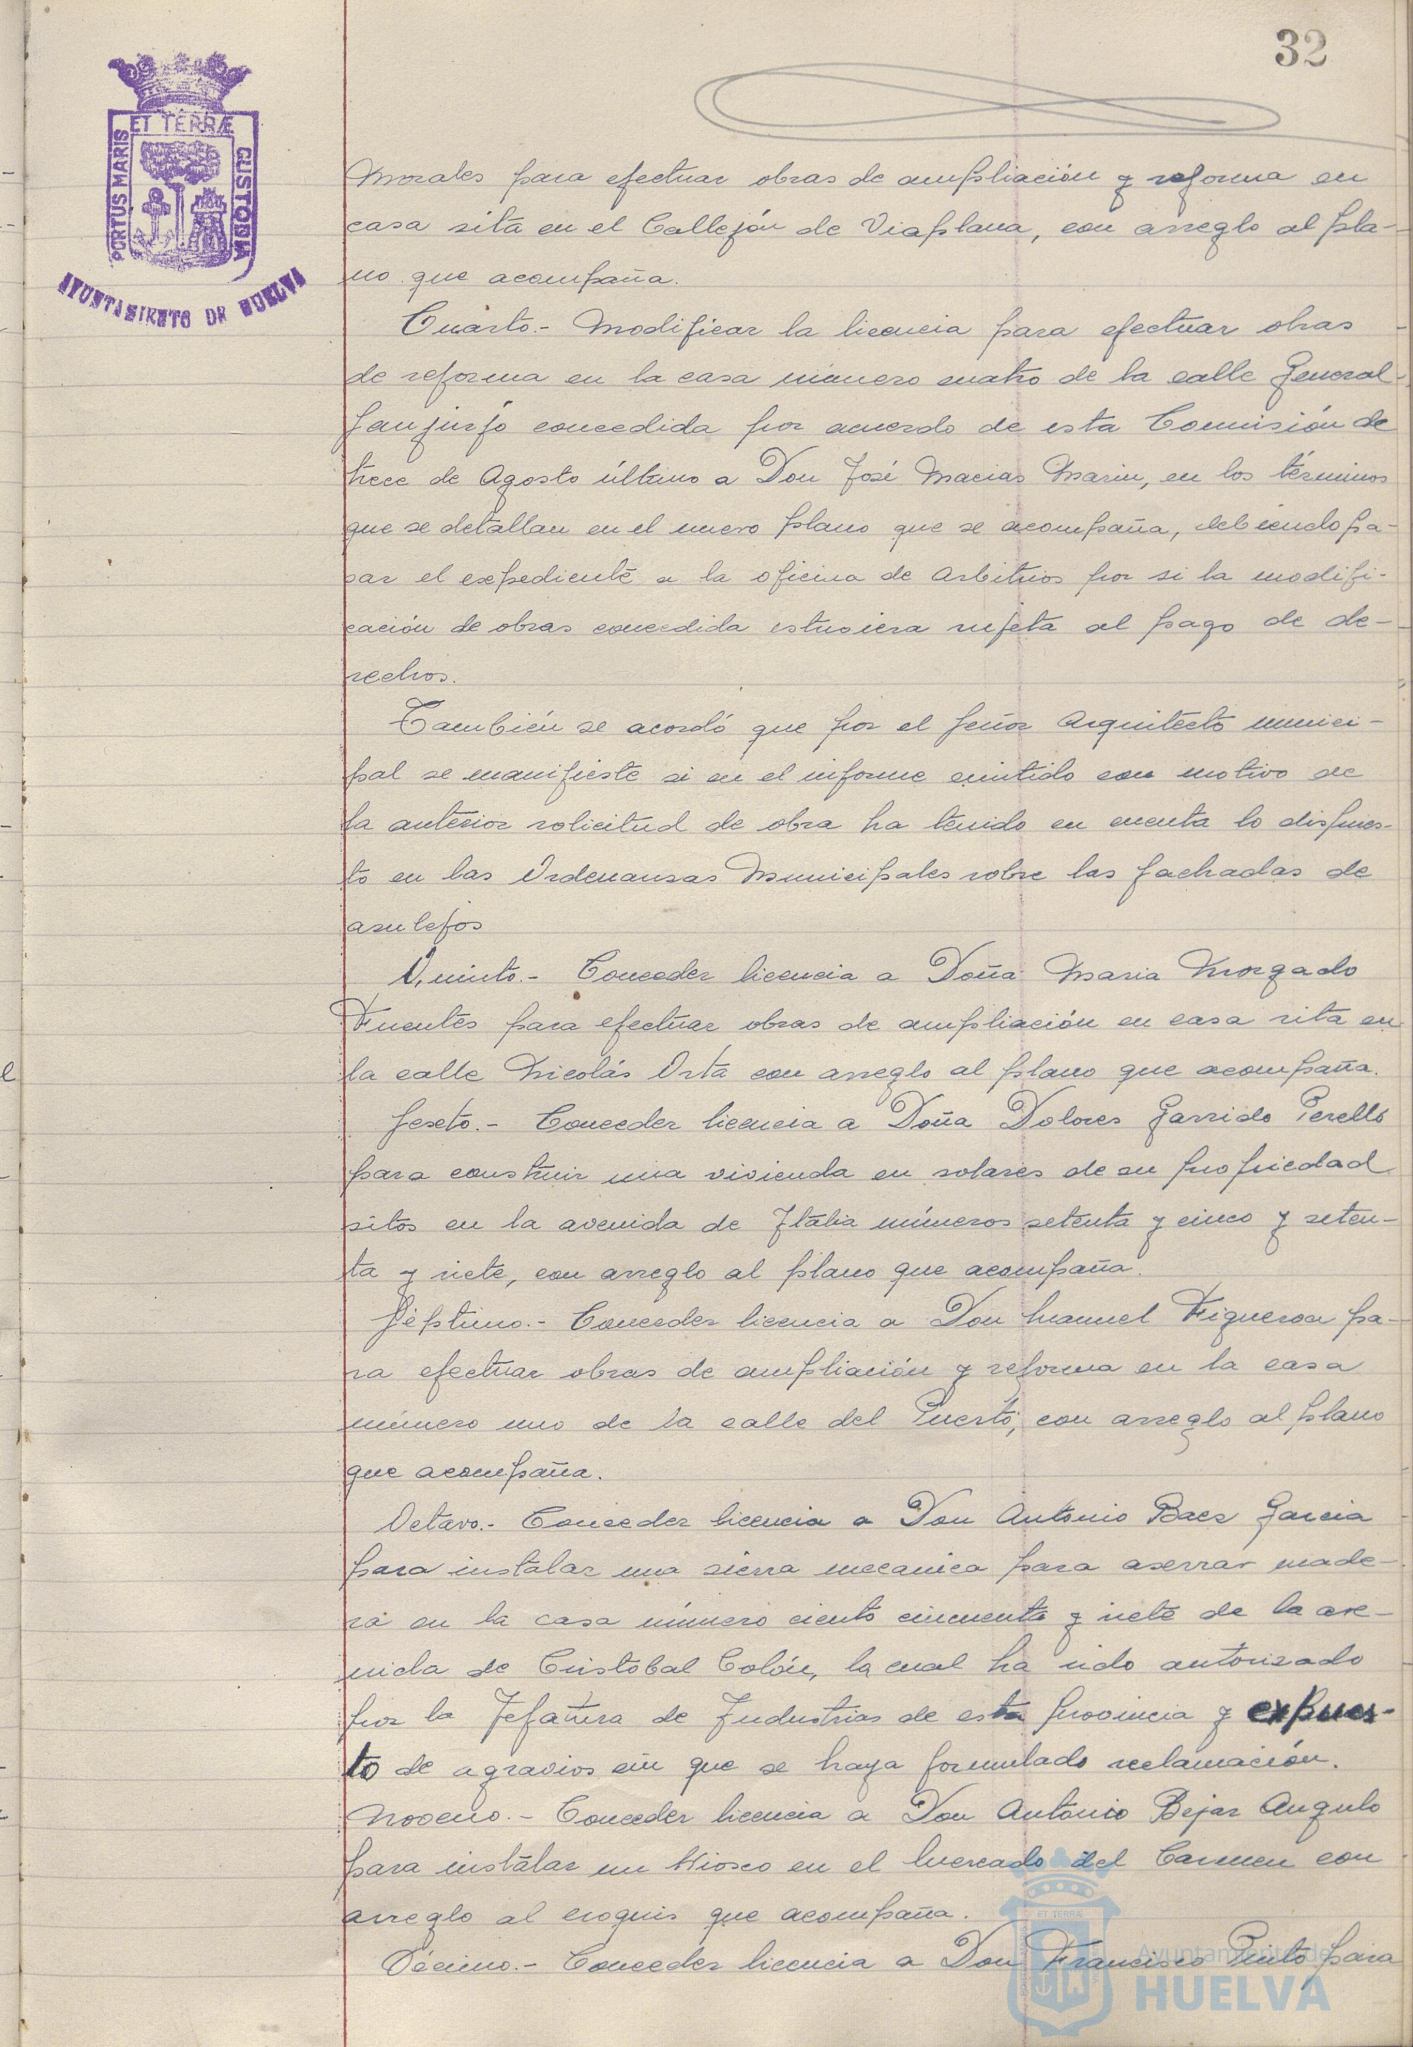 32
ET TERRÆ
PORTUS MARIS
CUSTODIA
AYUNTAMIENTO DE HUELVA
Morales para efectuar obras de ampliación y reforma en
casa sita en el Callejón de Viaplana, con arreglo al pla-
no que acompaña.
Cuarto.- Modificar la licencia para efectuar obras
de reforma en la casa número cuatro de la calle General
Sanjurjo concedida por acuerdo de esta Comisión de
trece de Agosto último a Don José Macias Marin, en los términos
que se detallan en el nuevo plano que se acompaña, debiendo pa-
sar el expediente a la oficina de Arbitrios por si la modifi-
cación de obras concedida estuviera sujeta al pago de de-
rechos.
También se acordó que por el Señor Arquitecto munici-
pal se manifieste si en el informe emitido con motivo de
la anterior solicitud de obra ha tenido en cuenta lo dispues-
to en las Ordenansas Municipales sobre las fachadas de
asulejos
Quinto.- Conceder licencia a Doña Maria Morgado
Fuentes para efectuar obras de ampliación en casa sita en
la calle Nicolás Orta con arreglo al plano que acompaña.
Sexto.- Conceder licencia a Doña Dolores Garrido Perelló
para construir una vivienda en solares de su propiedad
sitos en la avenida de Italia números setenta y cinco y seten-
ta y siete, con arreglo al plano que acompaña.
Séptimo.- Conceder licencia a Don Manuel Figueroa pa-
ra efectuar obras de ampliación y reforma en la casa
número uno de la calle del Puerto, con arreglo al plano
que acompaña.
Octavo.- Conceder licencia a Don Antonio Baez Garcia
para instalar una sierra mecanica para aserrar made-
ra en la casa número ciento cincuenta y siete de la ave-
nida de Cristobal Colón, la cual ha sido autorizado
por la Jefatura de Industrias de esta provincia y expues-
to de agravios sin que se haya formulado reclamación.
Noveno.- Conceder licencia a Don Antonio Bejar Angulo
para instalar un Kiosco en el Mercado del Carmen con
arreglo al croquis que acompaña.
Décimo.- Conceder licencia a Don Francisco Pinto para
ET TERRÆ
Ayuntamiento de
HUELVA